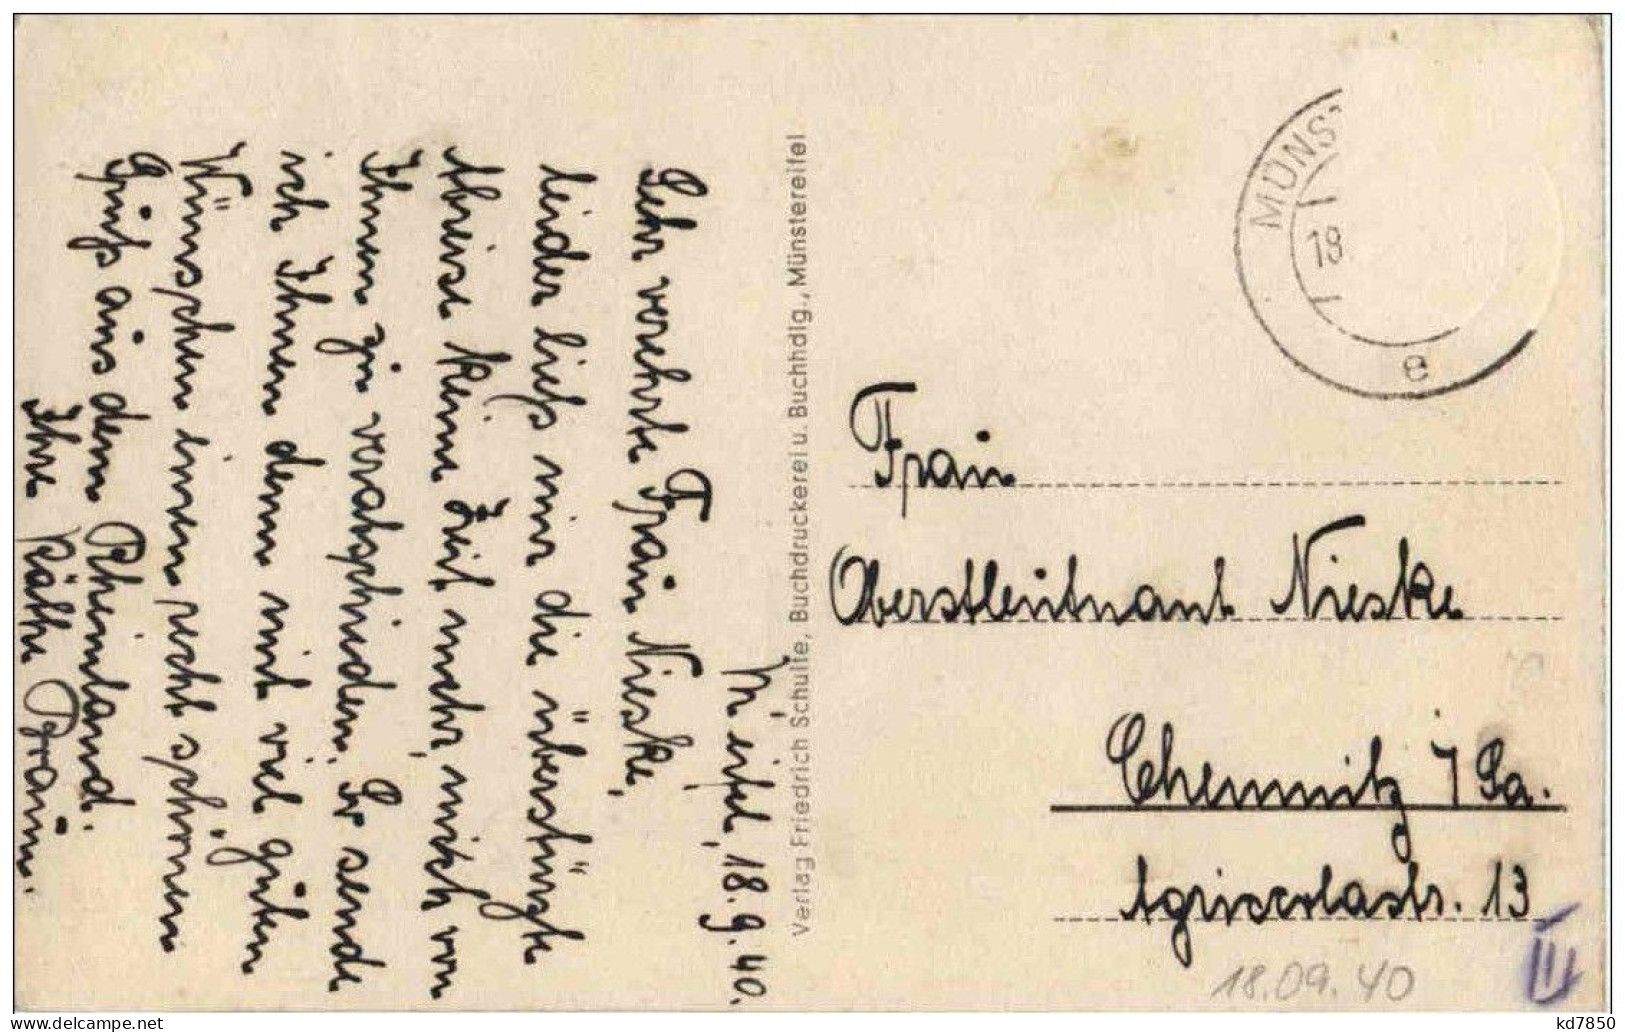 M'eifel, 18.9.40.
Sehr verehrte Frau Nieske,
leider ließ mir die überstürzte
Abreise keine Zeit mehr, mich von
Ihnen zu verabschieden. So sende
ich Ihnen denn mit viel guten
Wünschen einen recht schönen
Gruß aus dem Rheinland.
Ihre Käthe
Verlag Friedrich Schulte, Buchdruckerei u. Buchhdlg., Münstereifel
MÜNST
18
e
Frau
Oberstleutnant Nieske
Chemnitz i/Sa.
Agricolastr. 13
18.09.40
III
kd7850